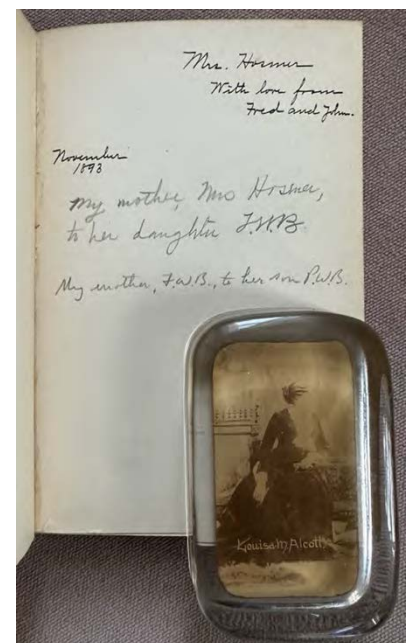 Mrs. Hosmer
With love from
Fred and John.
November
1893
My mother, Mrs Hosmer,
to her daughter F.W.B.
My mother, F.W.B., to her son P.W.B.
Louisa M Alcott